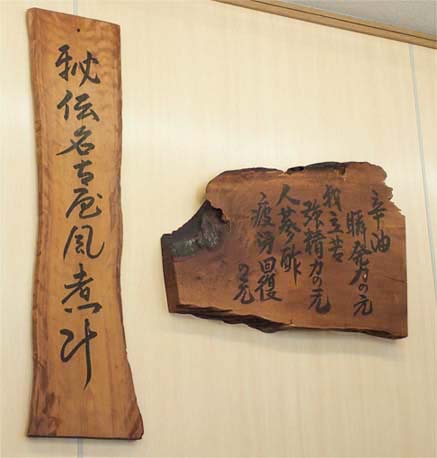 秘伝名古屋風煮汁
辛油
瞬発力の元
我立苦
強精力の元
人参酢
疲労回復
の元